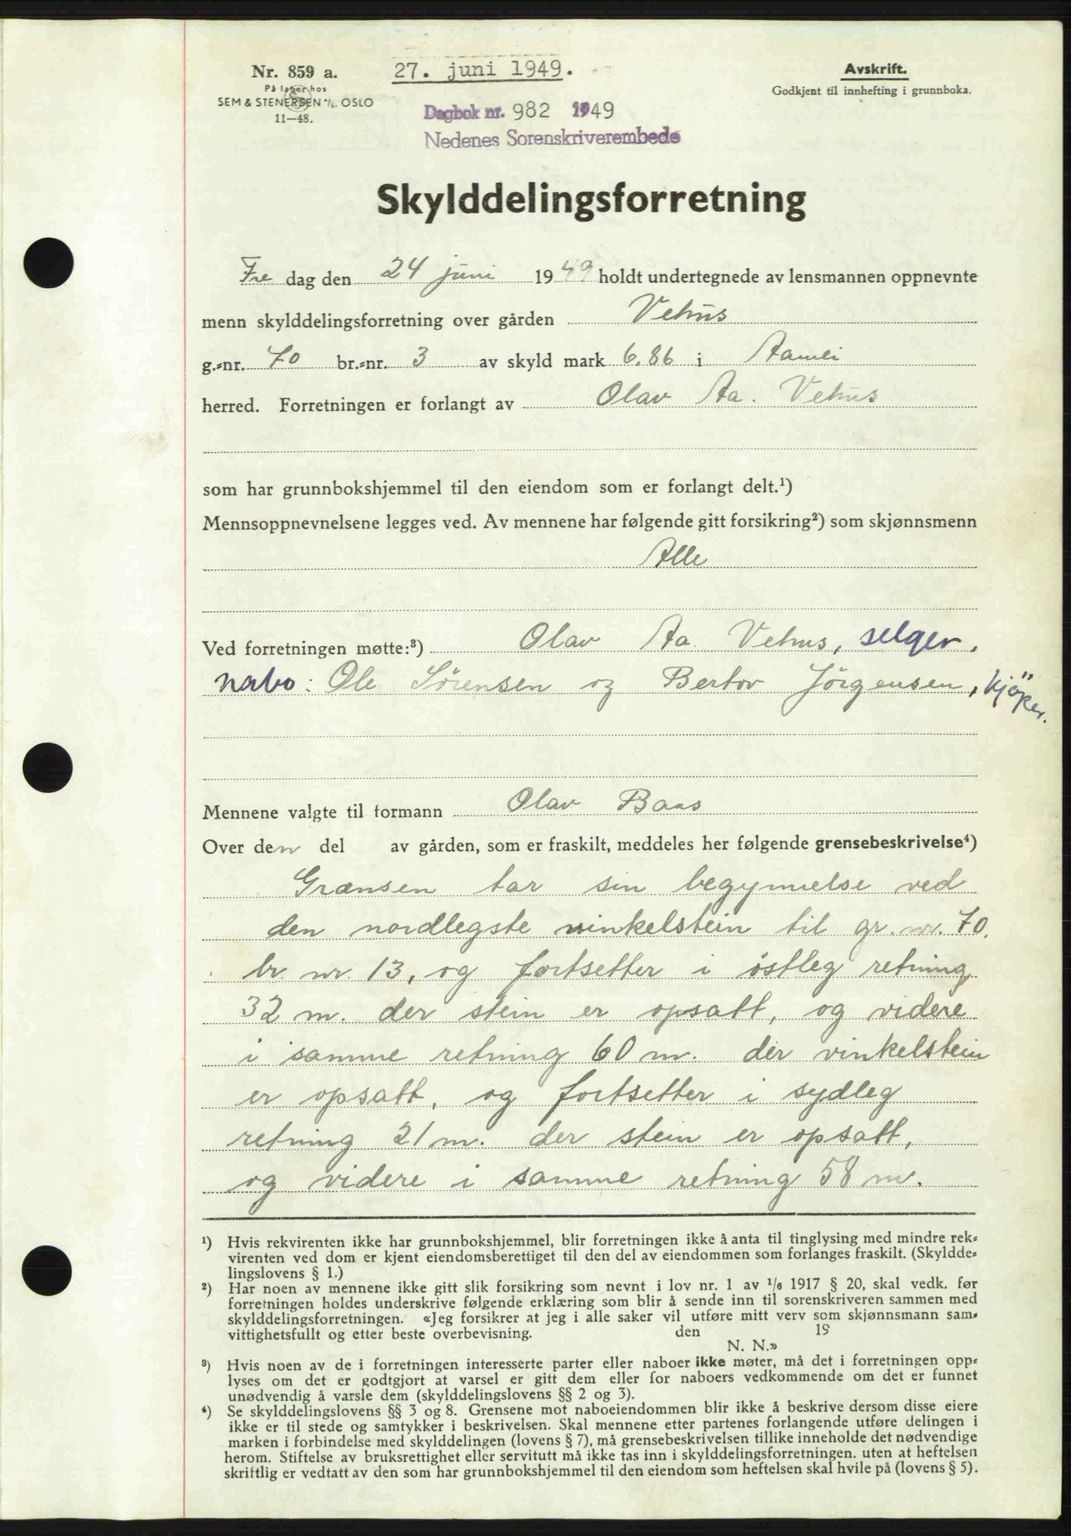 Nr. 859 a.
På lager hos
SEM & STENERSEN A/S OSLO
11—48.
27. juni 1949.
Dagbok nr. 982 1949
Nedenes Sorenskriverembede
Avskrift.
Godkjent til innhefting i grunnboka.
Skylddelingsforretning
Fre dag den 24 juni 1949 holdt undertegnede av lensmannen oppnevnte
menn skylddelingsforretning over gården Vehus
g.-nr. 70 br.-nr. 3 av skyld mark 6,86 i Aamli
herred. Forretningen er forlangt av Olav Aa. Vehus
som har grunnbokshjemmel til den eiendom som er forlangt delt.¹)
Mennsoppnevnelsene legges ved. Av mennene har følgende gitt forsikring²) som skjønnsmenn
Alle
Ved forretningen møtte:³) Olav Aa. Vehus, selger,
nabo: Ole Sörensen og Bertov Jörgensen, kjöper.
Mennene valgte til formann Olav Baas
Over den del av gården, som er fraskilt, meddeles her følgende grensebeskrivelse⁴)
Grænsen tar sin begynnelse ved
den nordlegste vinkelstein til gr. nr. 70.
br. nr. 13, og fortsetter i östleg retning
32 m. der stein er opsatt, og videre
i samme retning 60 m. der vinkelstein
er opsatt, og fortsetter i sydleg
retning 21 m. der stein er opsatt,
og videre i samme retning 58 m.
¹) Hvis rekvirenten ikke har grunnbokshjemmel, blir forretningen ikke å anta til tinglysing med mindre rek-
virenten ved dom er kjent eiendomsberettiget til den del av eiendommen som forlanges fraskilt. (Skyldde-
lingslovens § 1.)
²) Har noen av mennene ikke gitt slik forsikring som nevnt i lov nr. 1 av 1/6 1917 § 20, skal vedk. før
forretningen holdes underskrive følgende erklæring som blir å sende inn til sorenskriveren sammen med
skylddelingsforretningen. «Jeg forsikrer at jeg i alle saker vil utføre mitt verv som skjønnsmann sam-
vittighetsfullt og etter beste overbevisning. den 19
N. N.»
³) Hvis noen av de i forretningen interesserte parter eller naboer ikke møter, må det i forretningen opp-
lyses om det er godtgjort at varsel er gitt dem eller for naboers vedkommende om det er funnet
unødvendig å varsle dem (skylddelingslovens §§ 2 og 3).
⁴) Se skylddelingslovens §§ 3 og 8. Grensene mot naboeiendommen blir ikke å beskrive dersom disse eiere
ikke er til stede og samtykker i beskrivelsen. Skal mennene etter partenes forlangende utføre delingen i
marken i forbindelse med skylddelingen (lovens § 7), må grensebeskrivelsen tillike inneholde det nødvendige
herom. Stiftelse av bruksrettighet eller servitutt må ikke tas inn i skylddelingsforretningen. uten at heftelsen
skriftlig er vedtatt av den som har grunnbokshjemmel til den eiendom som heftelsen skal hvile på (lovens § 5).